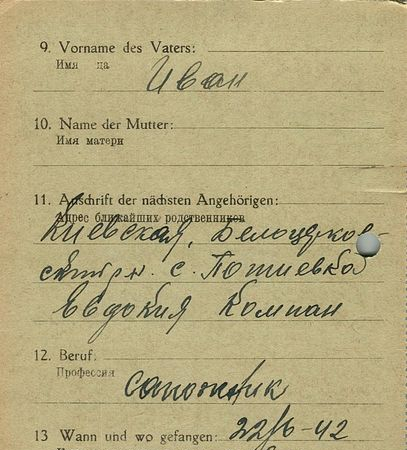 9. Vorname des Vaters:
Имя ца
Иван
10. Name der Mutter:
Имя матери
11. Anschrift der nächsten Angehörigen:
Адрес ближайших родственников
Киевская, Белоцерков-
с. Потиевка
Евдокия Компан
12. Beruf:
Профессия
сапожник
13 Wann und wo gefangen: 22/6-42